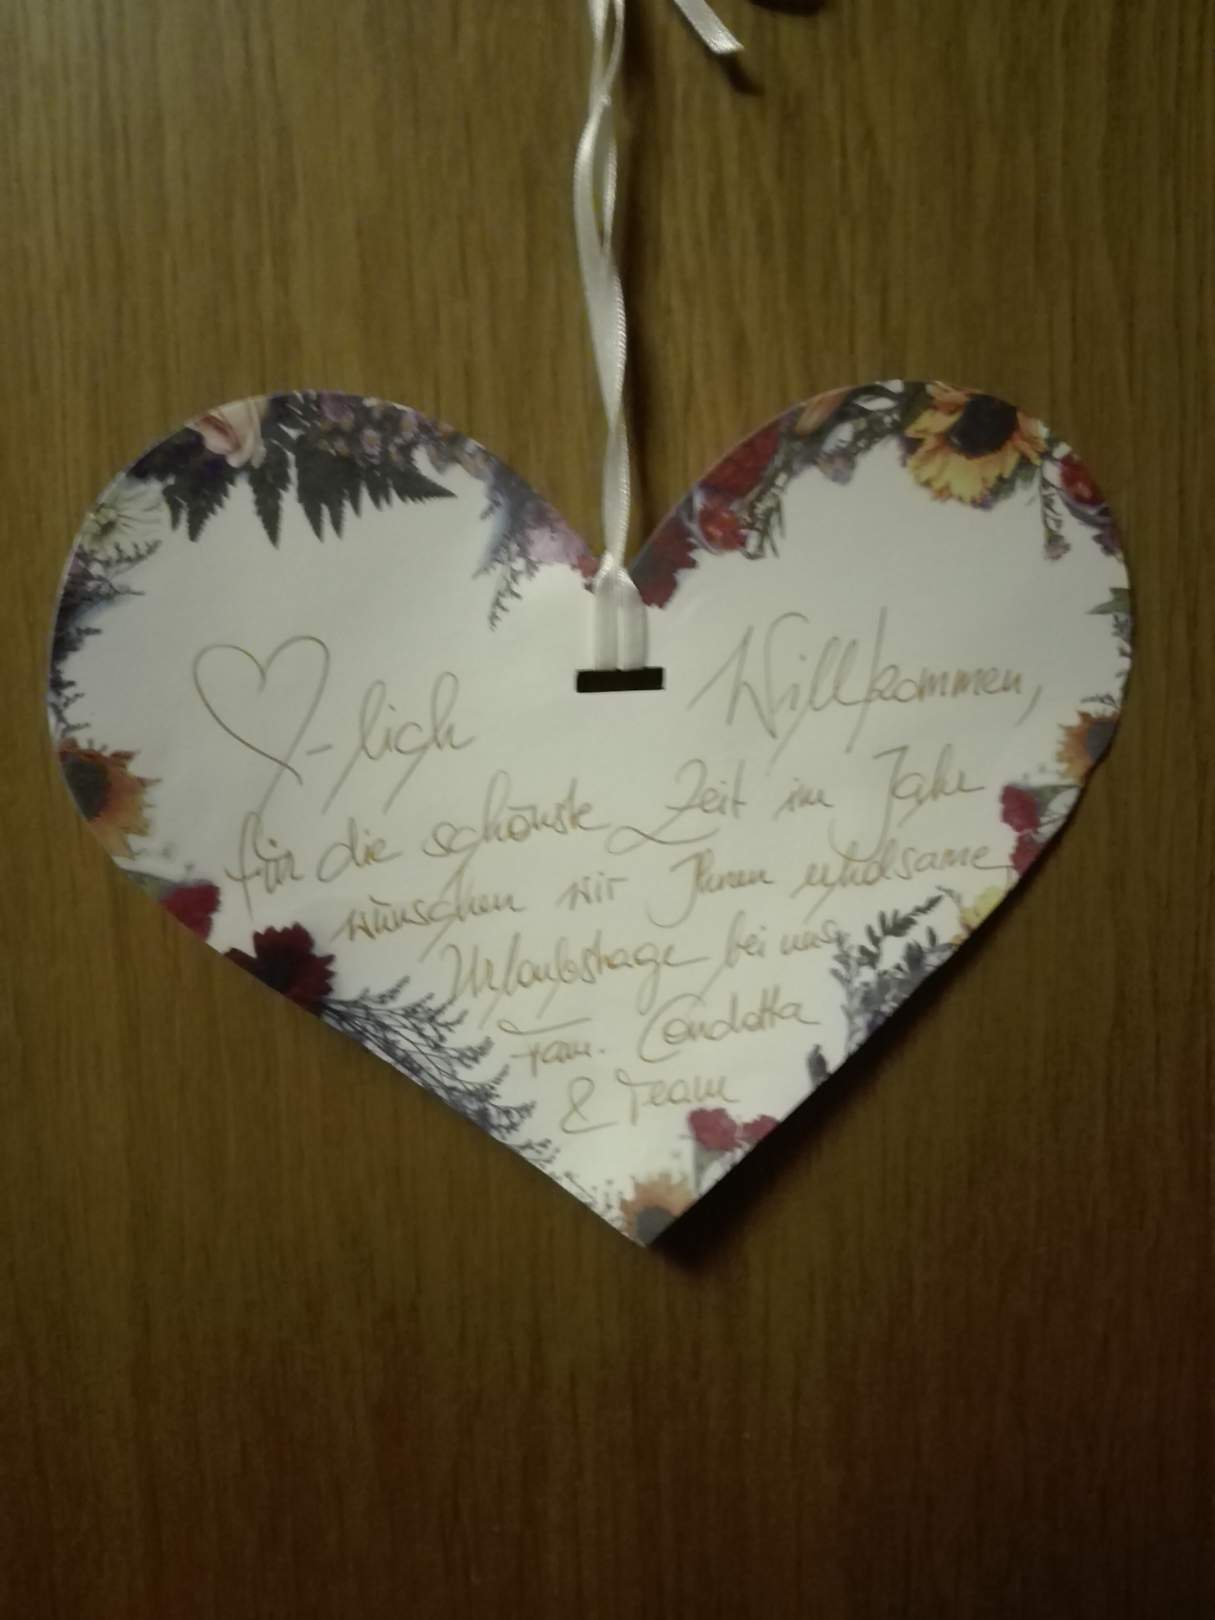 ♡-lich Willkommen,
für die schönste Zeit im Jahr
wünschen wir Ihnen erholsame
Urlaubstage bei uns
Fam. Condotta
& Team